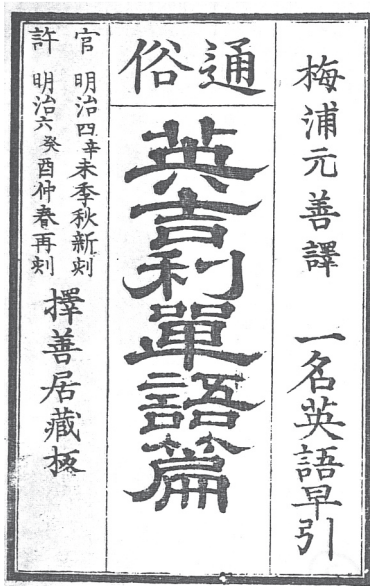 梅浦元善譯　一名英語早引
通俗
英吉利單語篇
官許
明治四辛未季秋新刻
明治六癸酉仲春再刻
擇善居藏板